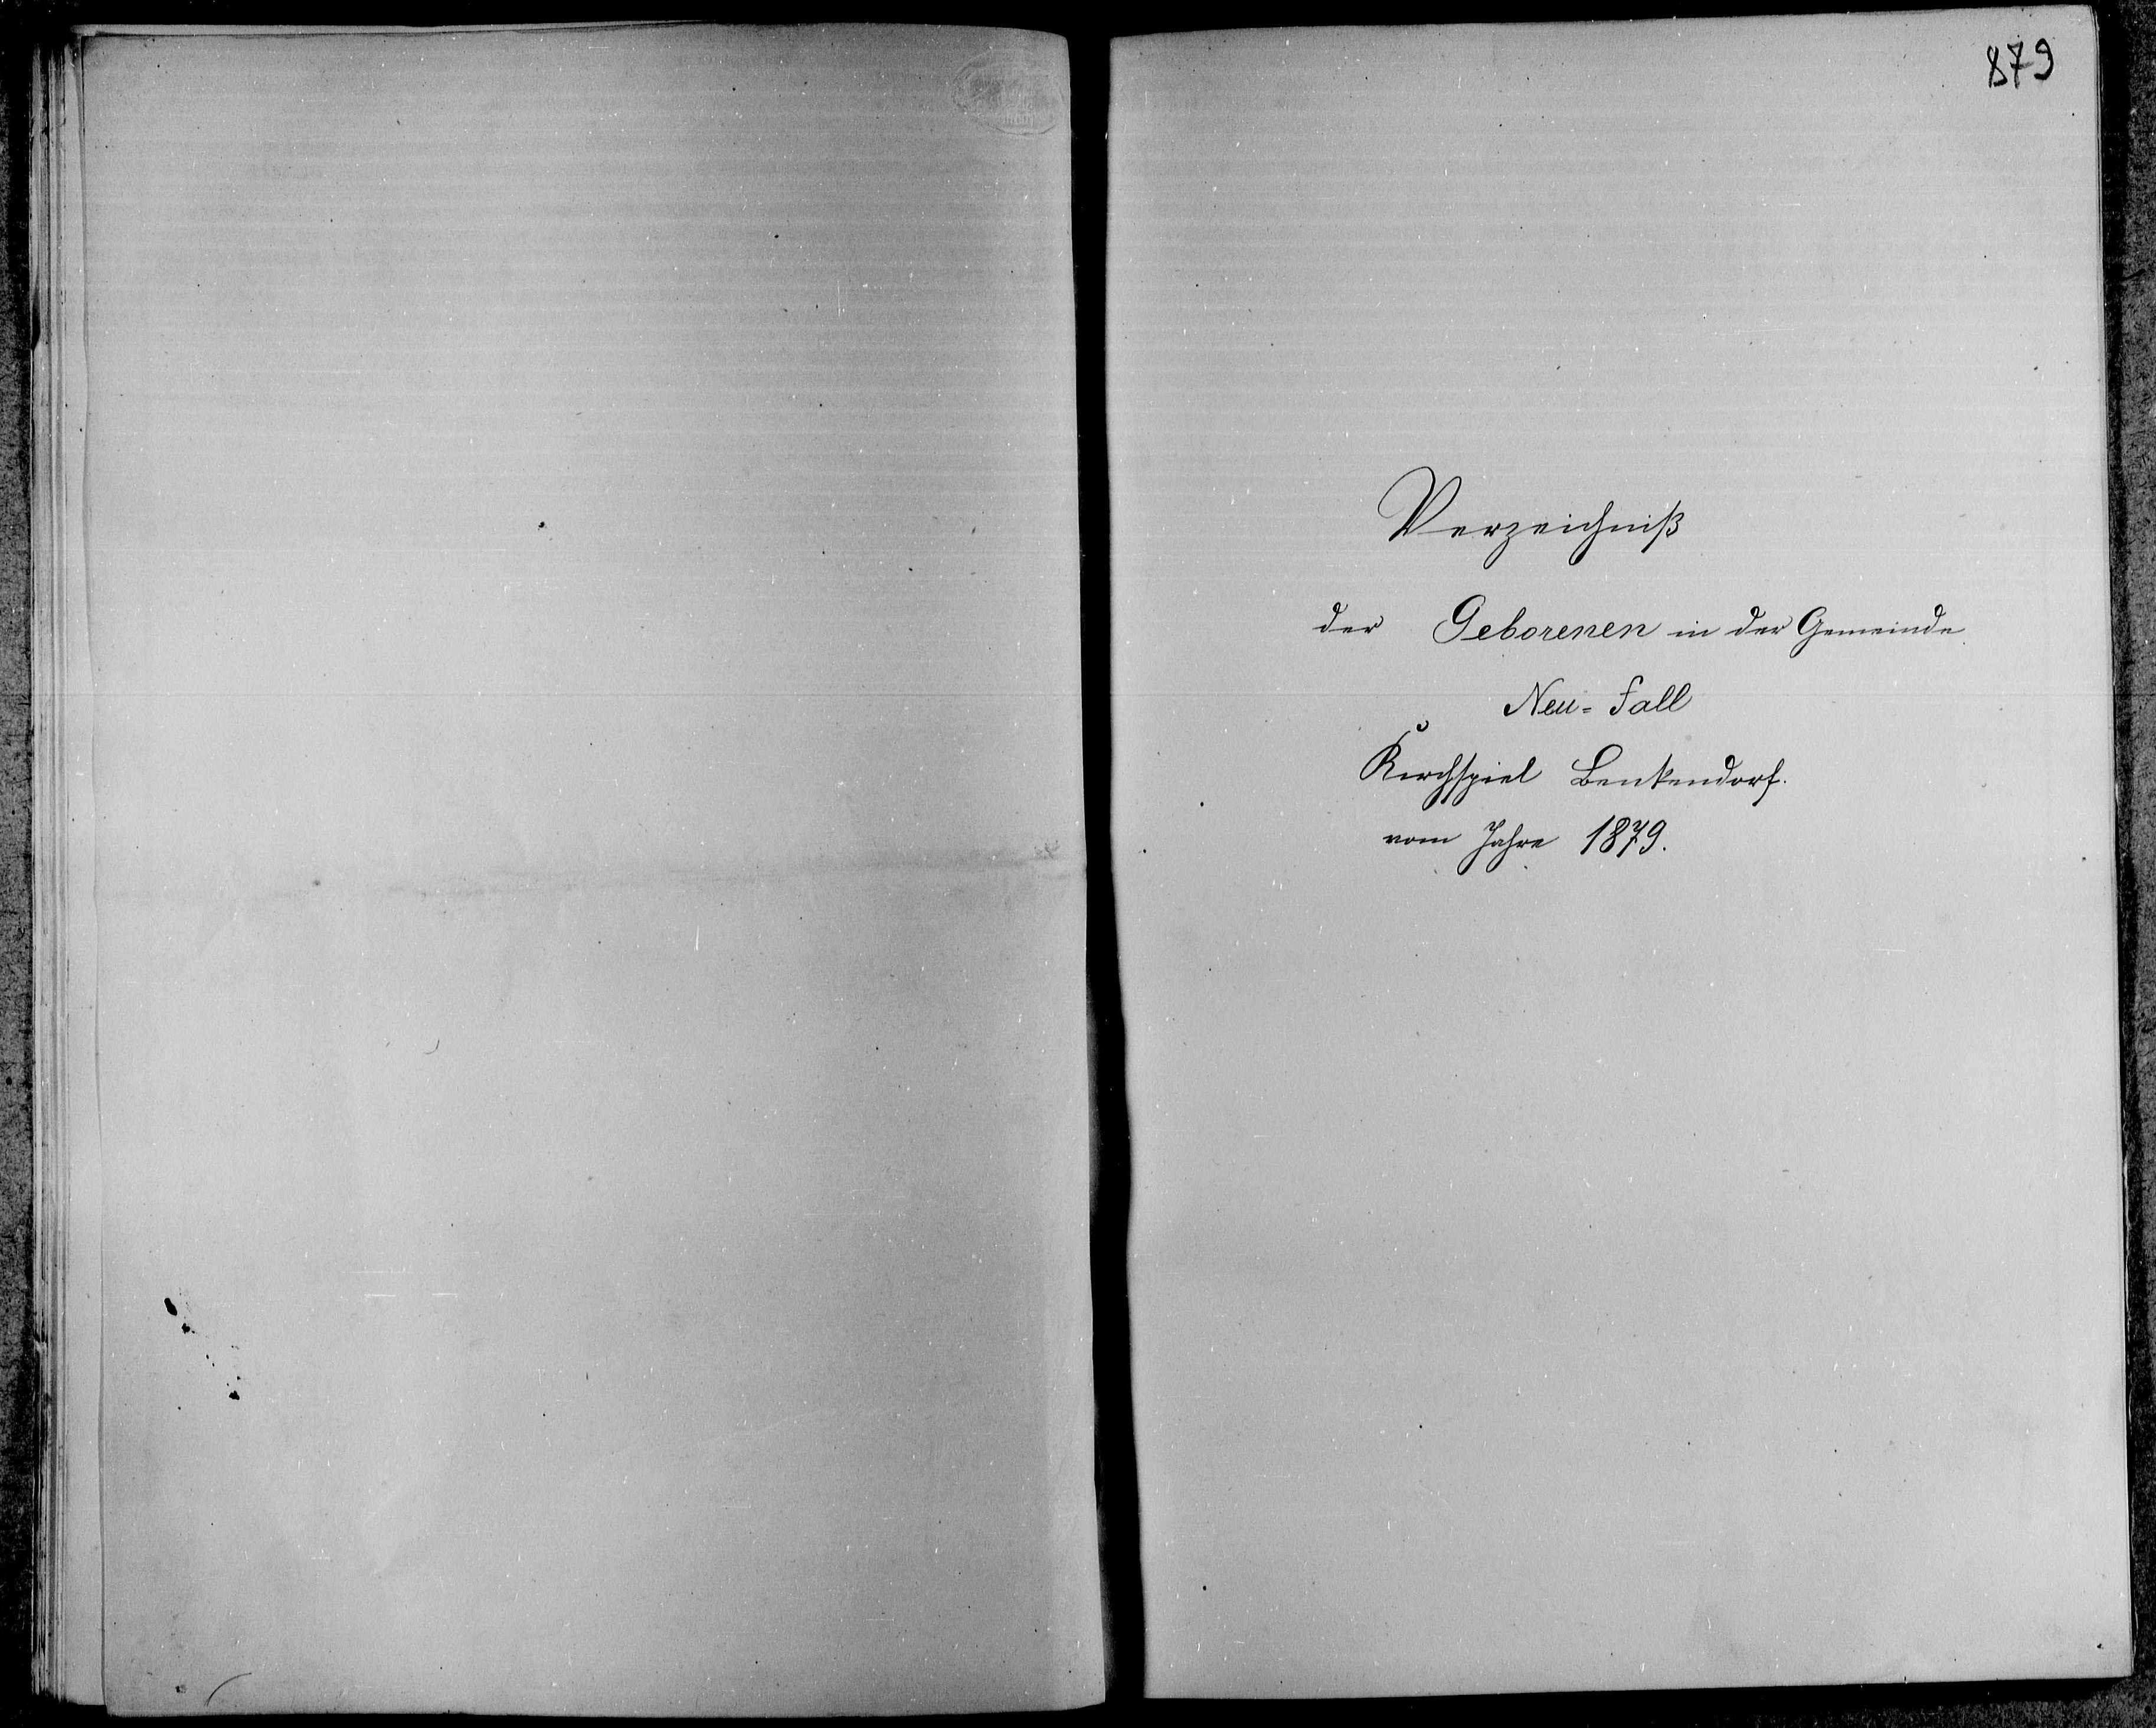 879
Verzeichniß
der Geborenen in der Gemeinde
Neu-Fall
Kirchspiel Benkendorf.
vom Jahre 1879.